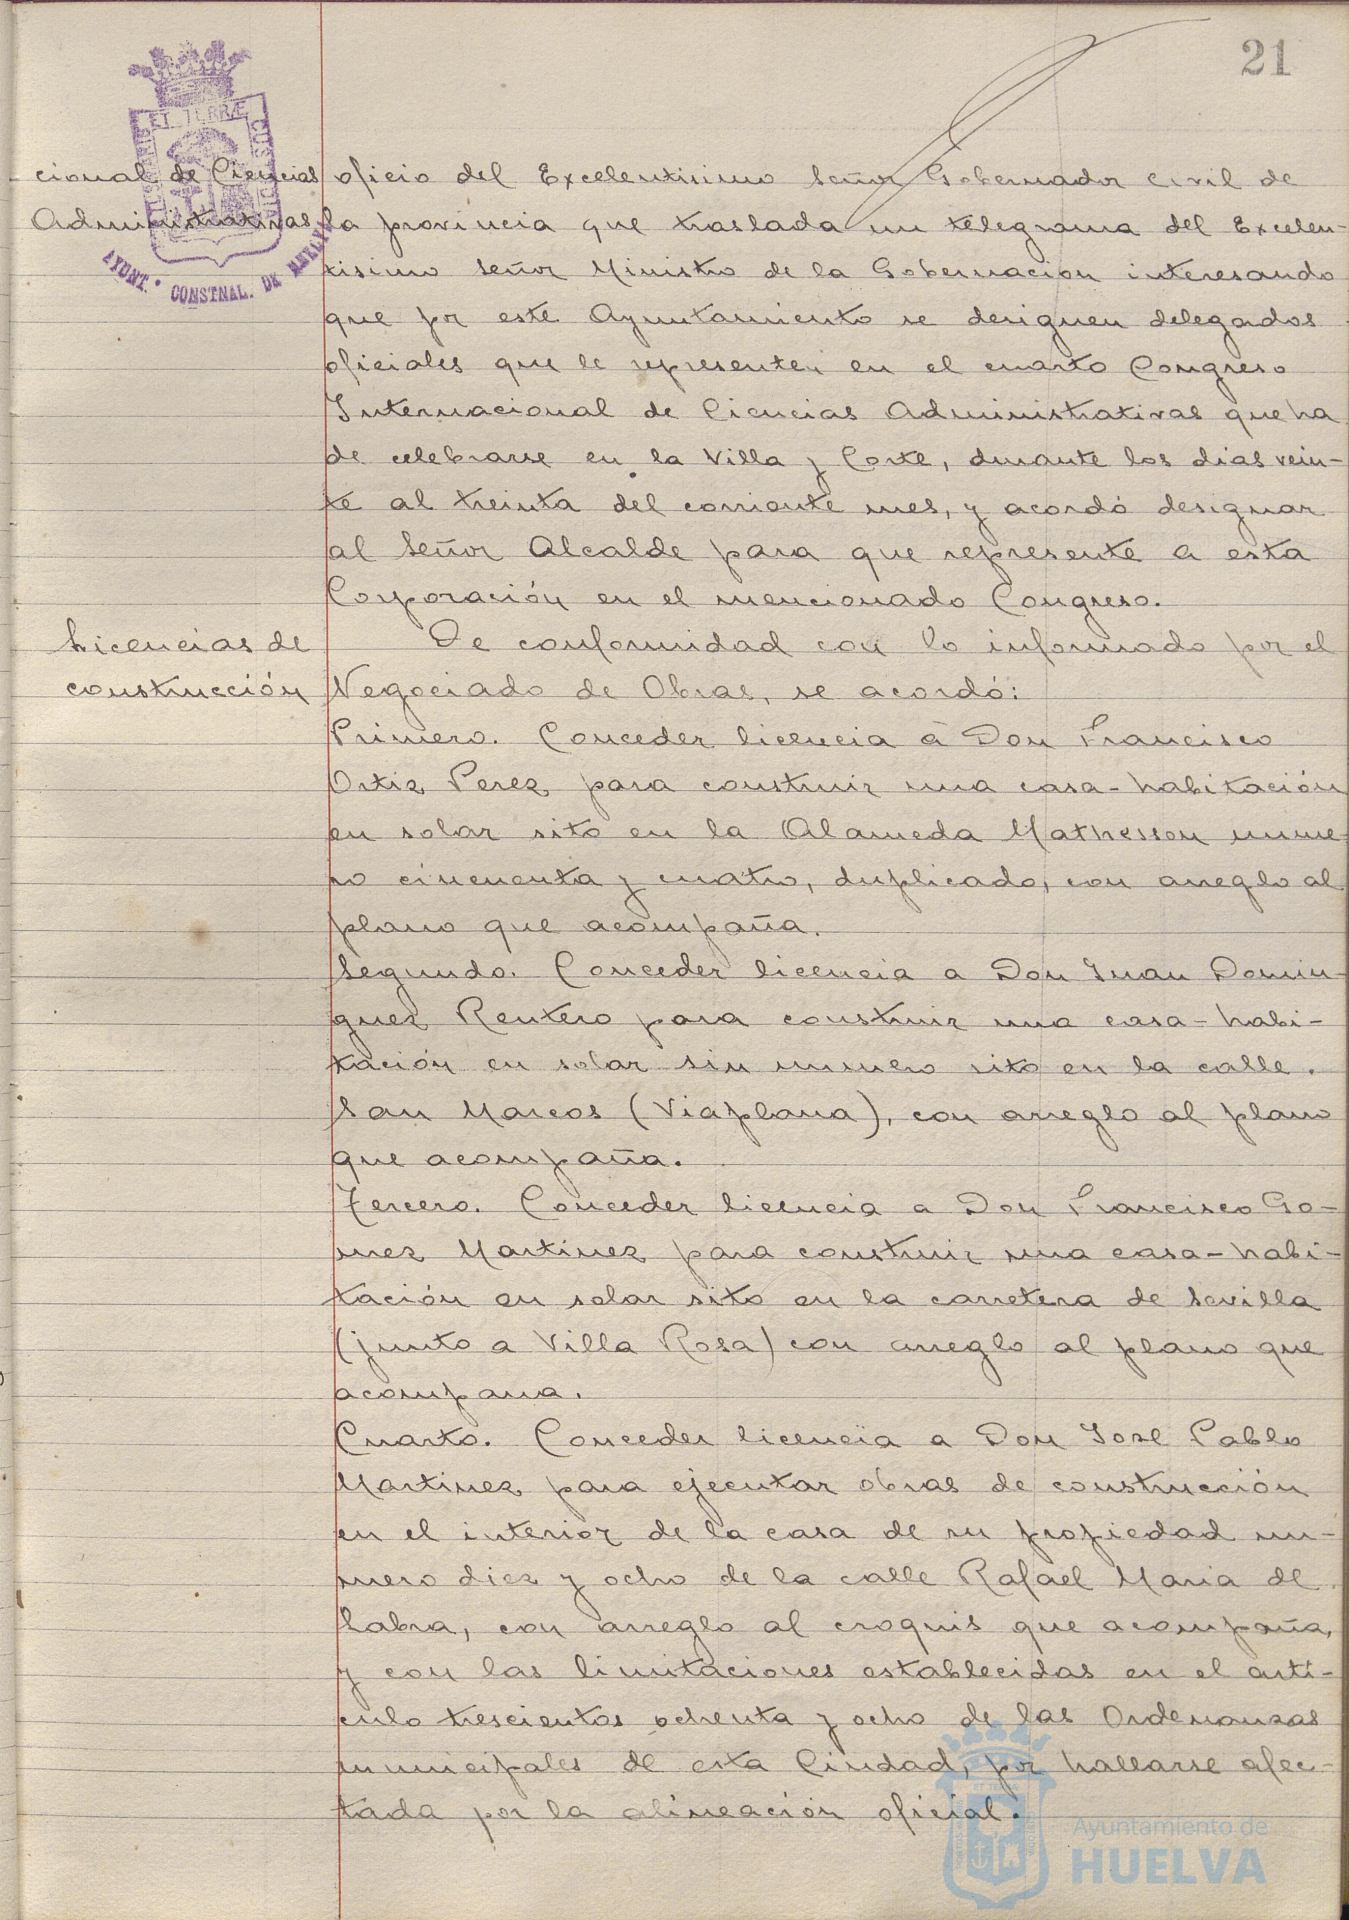 21
cional de Ciencias
Administrativas
oficio del Excelentisimo Señor Gobernador civil de
la provincia que traslada un telegrama del Excelen-
tisimo Señor Ministro de la Gobernacion interesando
que por este Ayuntamiento se designen delegados
oficiales que le representen en el cuarto Congreso
Internacional de Ciencias Administrativas que ha
de celebrarse en la Villa y Corte, durante los dias vein-
te al treinta del corriente mes, y acordó designar
al Señor Alcalde para que represente a esta
Corporación en el mencionado Congreso.
Licencias de
construcción
De conformidad con lo informado por el
Negociado de Obras, se acordó:
Primero. Conceder licencia a Don Francisco
Ortiz Perez para construir una casa-habitación
en solar sito en la Alameda Mathesson nume-
ro cincuenta y cuatro, duplicado, con arreglo al
plano que acompaña.
Segundo. Conceder licencia a Don Juan Domin-
guez Rentero para construir una casa-habi-
tación en solar sin numero sito en la calle
San Marcos (Viaplana), con arreglo al plano
que acompaña.
Tercero. Conceder licencia a Don Francisco Go-
mez Martinez para construir una casa-habi-
tación en solar sito en la carretera de Sevilla
(junto a Villa Rosa) con arreglo al plano que
acompana.
Cuarto. Conceder licencia a Don José Pablo
Martinez para ejecutar obras de construcción
en el interior de la casa de su propiedad nu-
mero diez y ocho de la calle Rafael Maria de
Labra, con arreglo al croquis que acompaña,
y con las limitaciones establecidas en el artí-
culo trescientos ochenta y ocho de las Ordenanzas
municipales de esta Ciudad, por hallarse afec-
tada por la alineación oficial.
ET TERRÆ
AYUNT. CONSTNAL. DE HUELVA
Ayuntamiento de
HUELVA